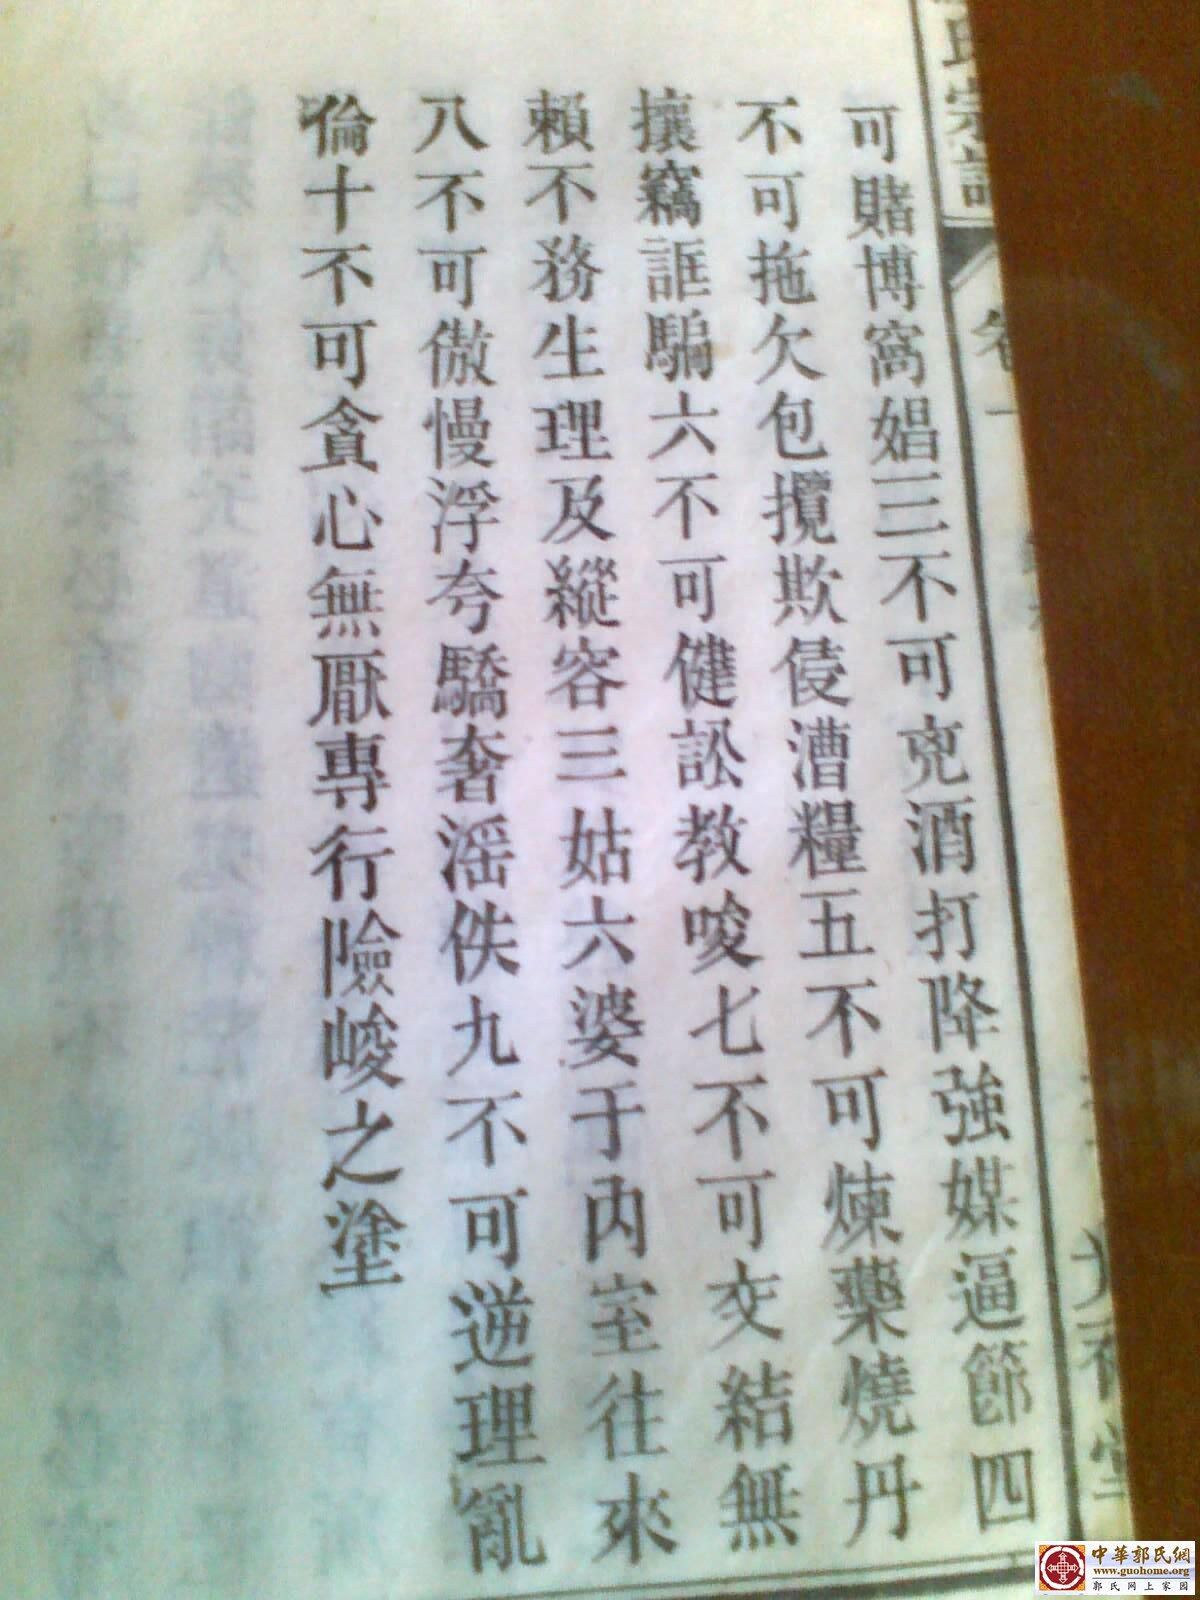 氏宗譜
卷一
堂
可賭博窩娼三不可兇酒打降強媒逼節四
不可拖欠包攬欺侵漕糧五不可煉藥燒丹
攘竊誆騙六不可健訟教唆七不可交結無
賴不務生理及縱容三姑六婆于內室往來
八不可傲慢浮夸驕奢淫佚九不可逆理亂
倫十不可貪心無厭專行險峻之塗
中華郭氏網
www.guohome.org
郭氏网上家园